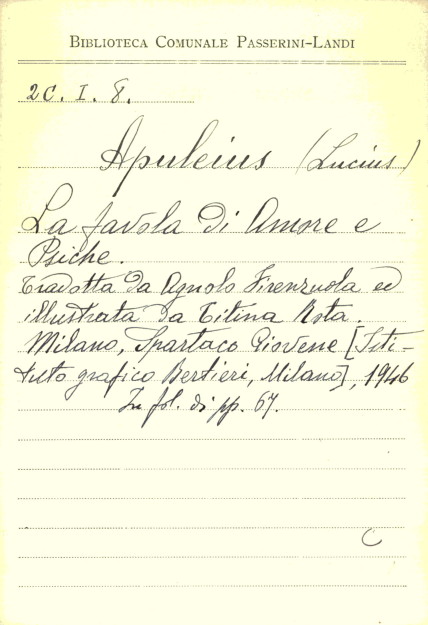 BIBLIOTECA COMUNALE PASSERINI-LANDI
2C. I. 8.
Apuleius (Lucius)
La favola di Amore e
Psiche.
Tradotta da Agnolo Firenzuola ed
illustrata da Titina Rota.
Milano, Spartaco Giovene [Isti-
tuto grafico Bertieri, Milano], 1946
In fol. di pp. 67.
C